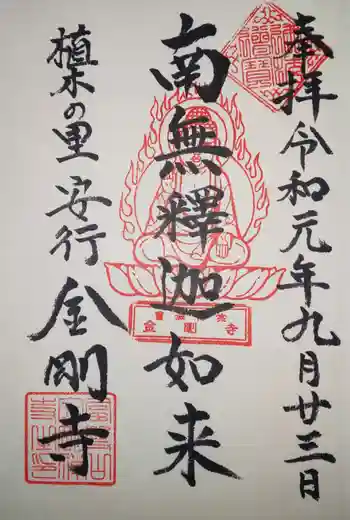 奉拝令和元年九月廿三日
南無釋迦如来
植木の里安行金剛寺
金剛寺